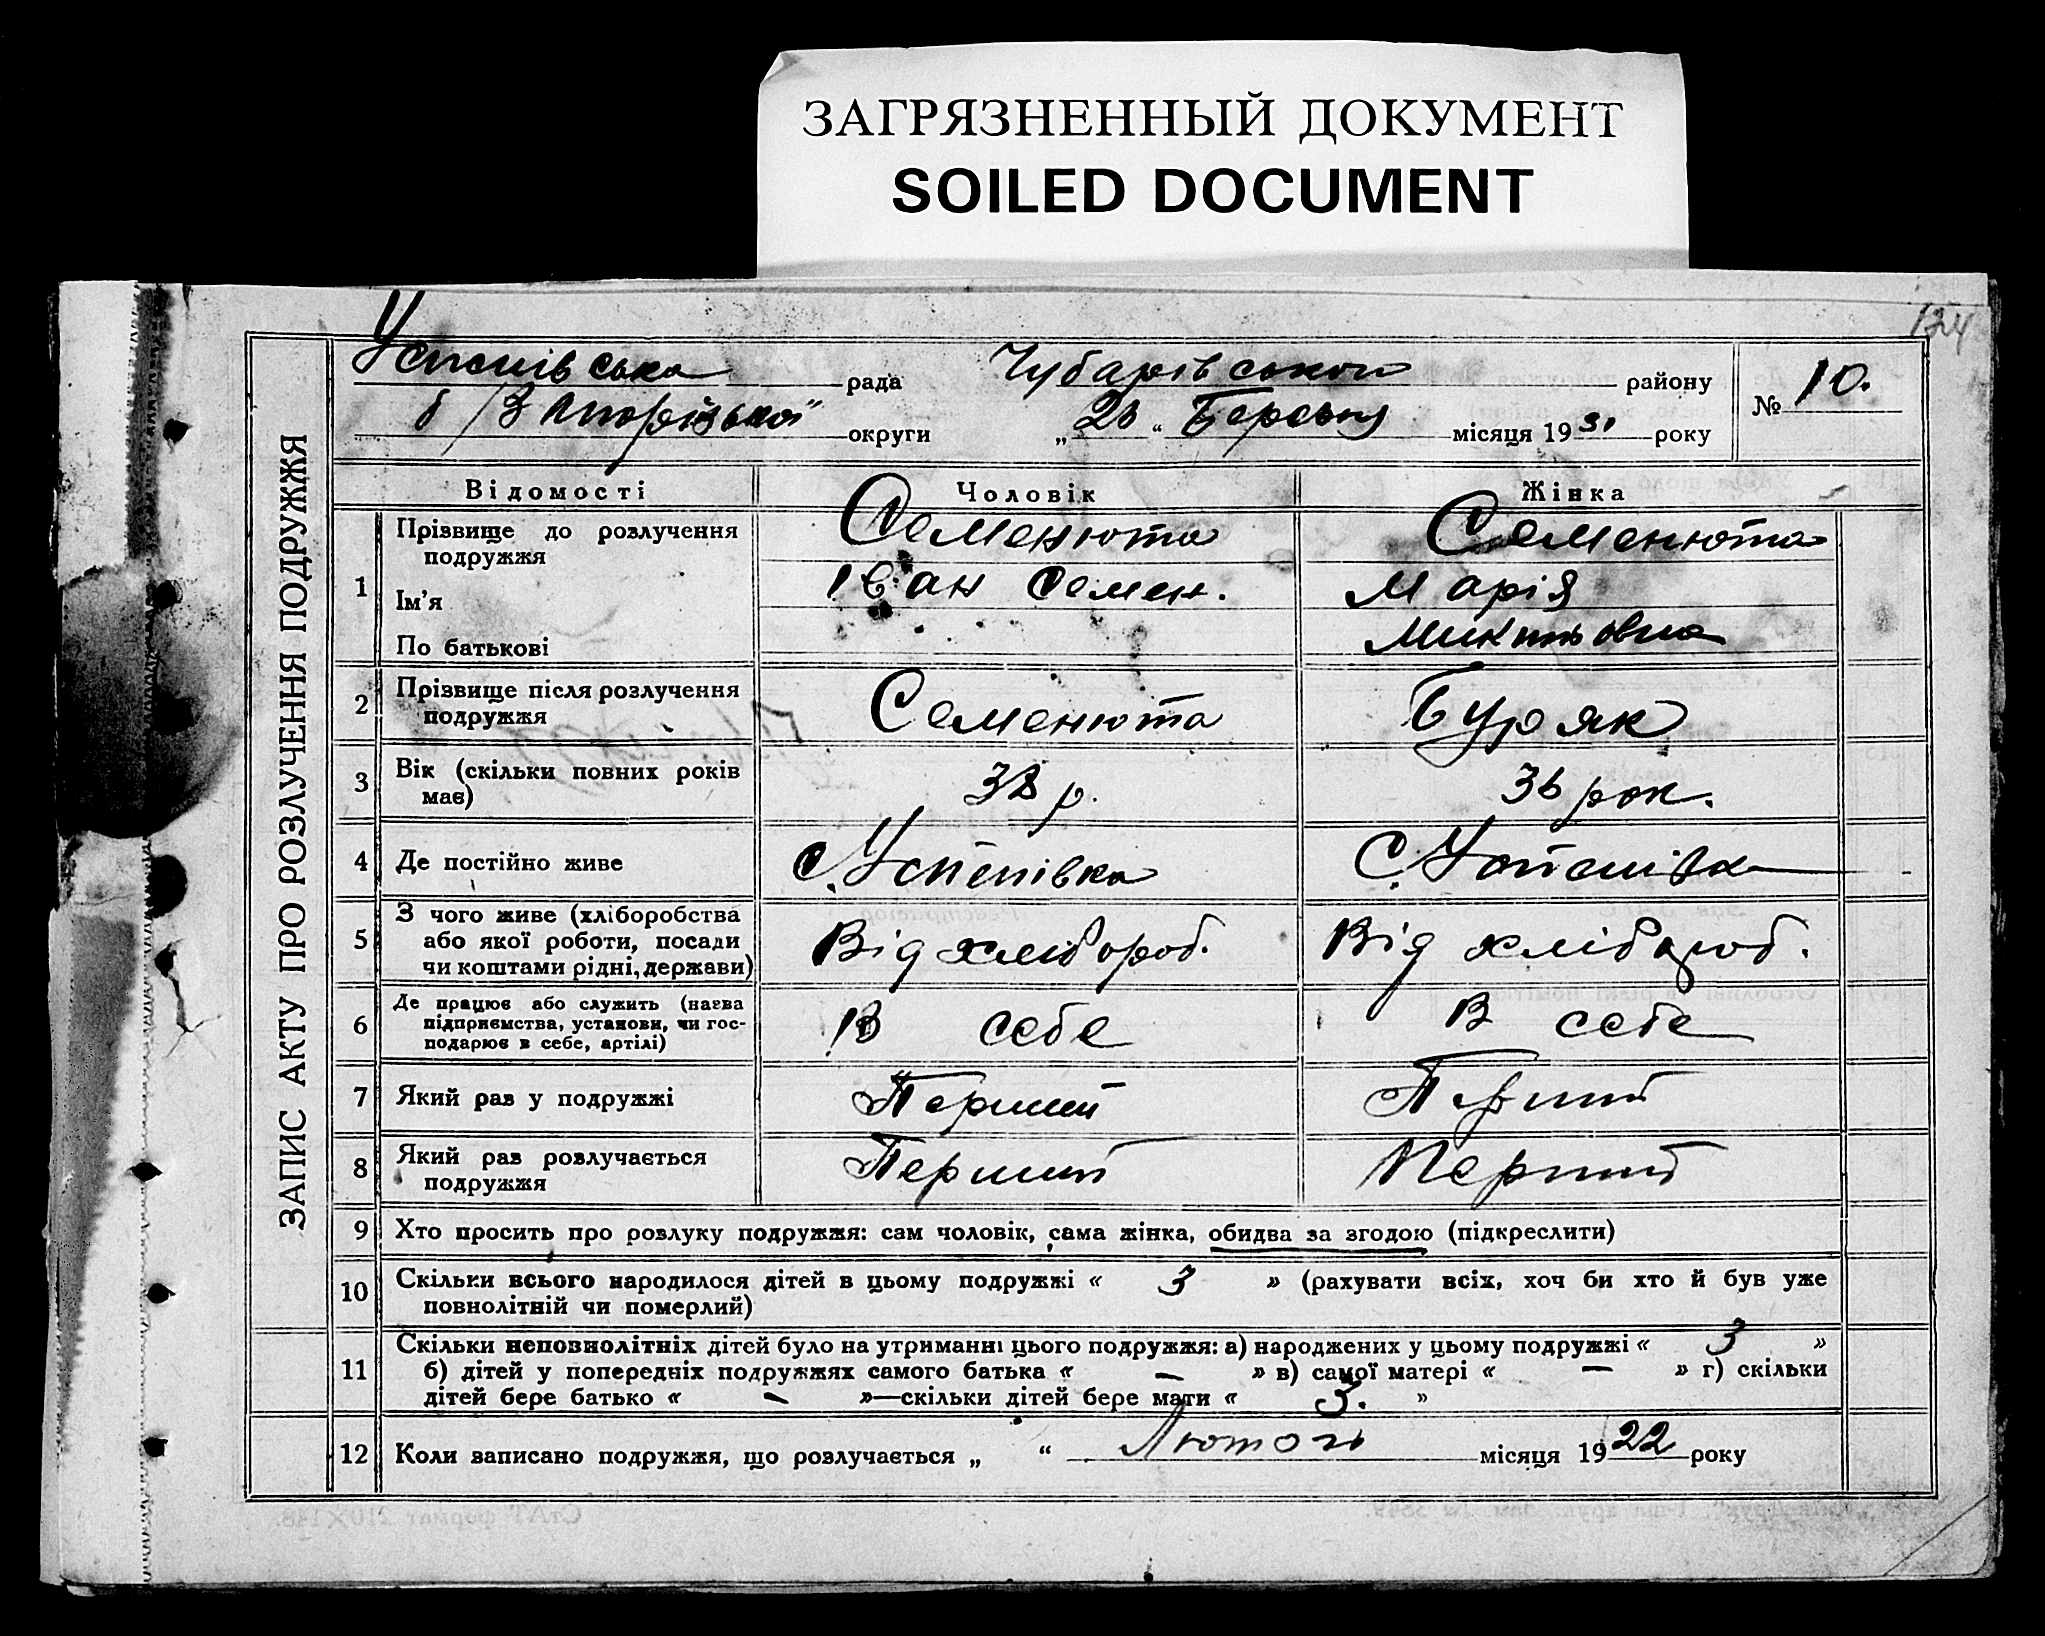 ЗАГРЯЗНЕННЫЙ ДОКУМЕНТ
SOILED DOCUMENT
124
Успенівська рада Чубарівського району № 10.
б/Запорізької округи „ “ Березня місяця 1931 року
ЗАПИС АКТУ ПРО РОЗЛУЧЕННЯ ПОДРУЖЖЯ
Відомості Чоловік Жінка
1 Прізвище до розлучення подружжя Семенюта Семенюта
Ім'я Іван Семен. Марія
По батькові Микитовна
2 Прізвище після розлучення подружжя Семенюта Буряк
3 Вік (скільки повних років має) р. рок.
4 Де постійно живе с. Успенівка с. Успенівка
5 З чого живе (хліборобства або якої роботи, посади чи коштами рідні, держави) Від хлібороб. Від хлібороб.
6 Де працює або служить (назва підприємства, установи, чи господарює в себе, артілі) В себе В себе
7 Який раз у подружжі Перший Перший
8 Який раз розлучається подружжя Перший Перший
9 Хто просить про розлуку подружжя: сам чоловік, сама жінка, обидва за згодою (підкреслити)
10 Скільки всього народилося дітей в цьому подружжі « 3 » (рахувати всіх, хоч би хто й був уже
повнолітній чи померлий)
11 Скільки неповнолітніх дітей було на утриманні цього подружжя: а) народжених у цьому подружжі « 3 »
б) дітей у попередніх подружжях самого батька « — » в) самої матері « — » г) скільки
дітей бере батько « — »—скільки дітей бере мати « 3. »
12 Коли записано подружжя, що розлучається „ “ Лютого місяця 1922 року